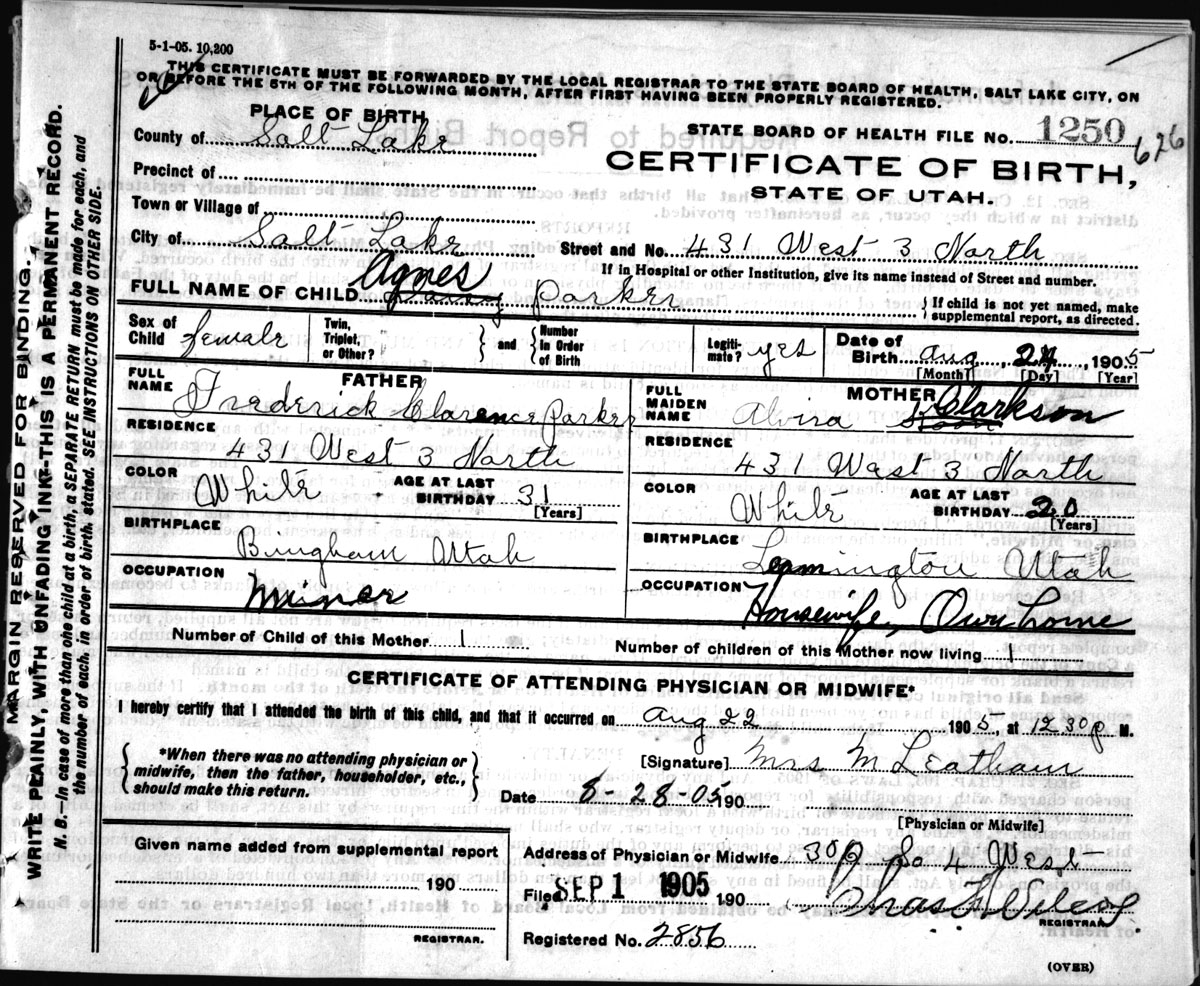 5-1-05. 10,200
THIS CERTIFICATE MUST BE FORWARDED BY THE LOCAL REGISTRAR TO THE STATE BOARD OF HEALTH, SALT LAKE CITY, ON
OR BEFORE THE 5TH OF THE FOLLOWING MONTH, AFTER FIRST HAVING BEEN PROPERLY REGISTERED.
PLACE OF BIRTH
STATE BOARD OF HEALTH FILE NO. 1250 626
County of Salt Lake
CERTIFICATE OF BIRTH,
Precinct of
STATE OF UTAH.
Town or Village of
City of Salt Lake Street and No. 431 West 3 North
If in Hospital or other Institution, give its name instead of Street and number.
Agnes
FULL NAME OF CHILD Parker { If child is not yet named, make supplemental report, as directed.
Sex of Child female Twin, Triplet, or Other? } and { Number in Order of Birth Legiti-mate? yes Date of Birth Aug 24, 1905
[Month] [Day] [Year]
FATHER
FULL NAME Frederick Clarence Parker
RESIDENCE 431 West 3 North
COLOR White AGE AT LAST BIRTHDAY 31 [Years]
BIRTHPLACE Bingham Utah
OCCUPATION Miner
MOTHER
FULL MAIDEN NAME Alvira Clarkson
RESIDENCE 431 West 3 North
COLOR White AGE AT LAST BIRTHDAY 20 [Years]
BIRTHPLACE Leamington Utah
OCCUPATION Housewife, Own home
Number of Child of this Mother 1 Number of children of this Mother now living 1
CERTIFICATE OF ATTENDING PHYSICIAN OR MIDWIFE*
I hereby certify that I attended the birth of this child, and that it occurred on Aug 22 1905, at 12 30 p M.
{ *When there was no attending physician or midwife, then the father, householder, etc., should make this return. }
[Signature] Mrs M Leatham
Date 8-28-05 190
[Physician or Midwife]
Given name added from supplemental report
190
REGISTRAR.
Address of Physician or Midwife 302 So 4 West
Filed SEP 1 1905 190
REGISTRAR.
Registered No. 2856
(OVER)
MARGIN RESERVED FOR BINDING.
WRITE PLAINLY, WITH UNFADING INK—THIS IS A PERMANENT RECORD.
N. B.—In case of more than one child at a birth, a SEPARATE RETURN must be made for each, and
the number of each, in order of birth, stated. SEE INSTRUCTIONS ON OTHER SIDE.